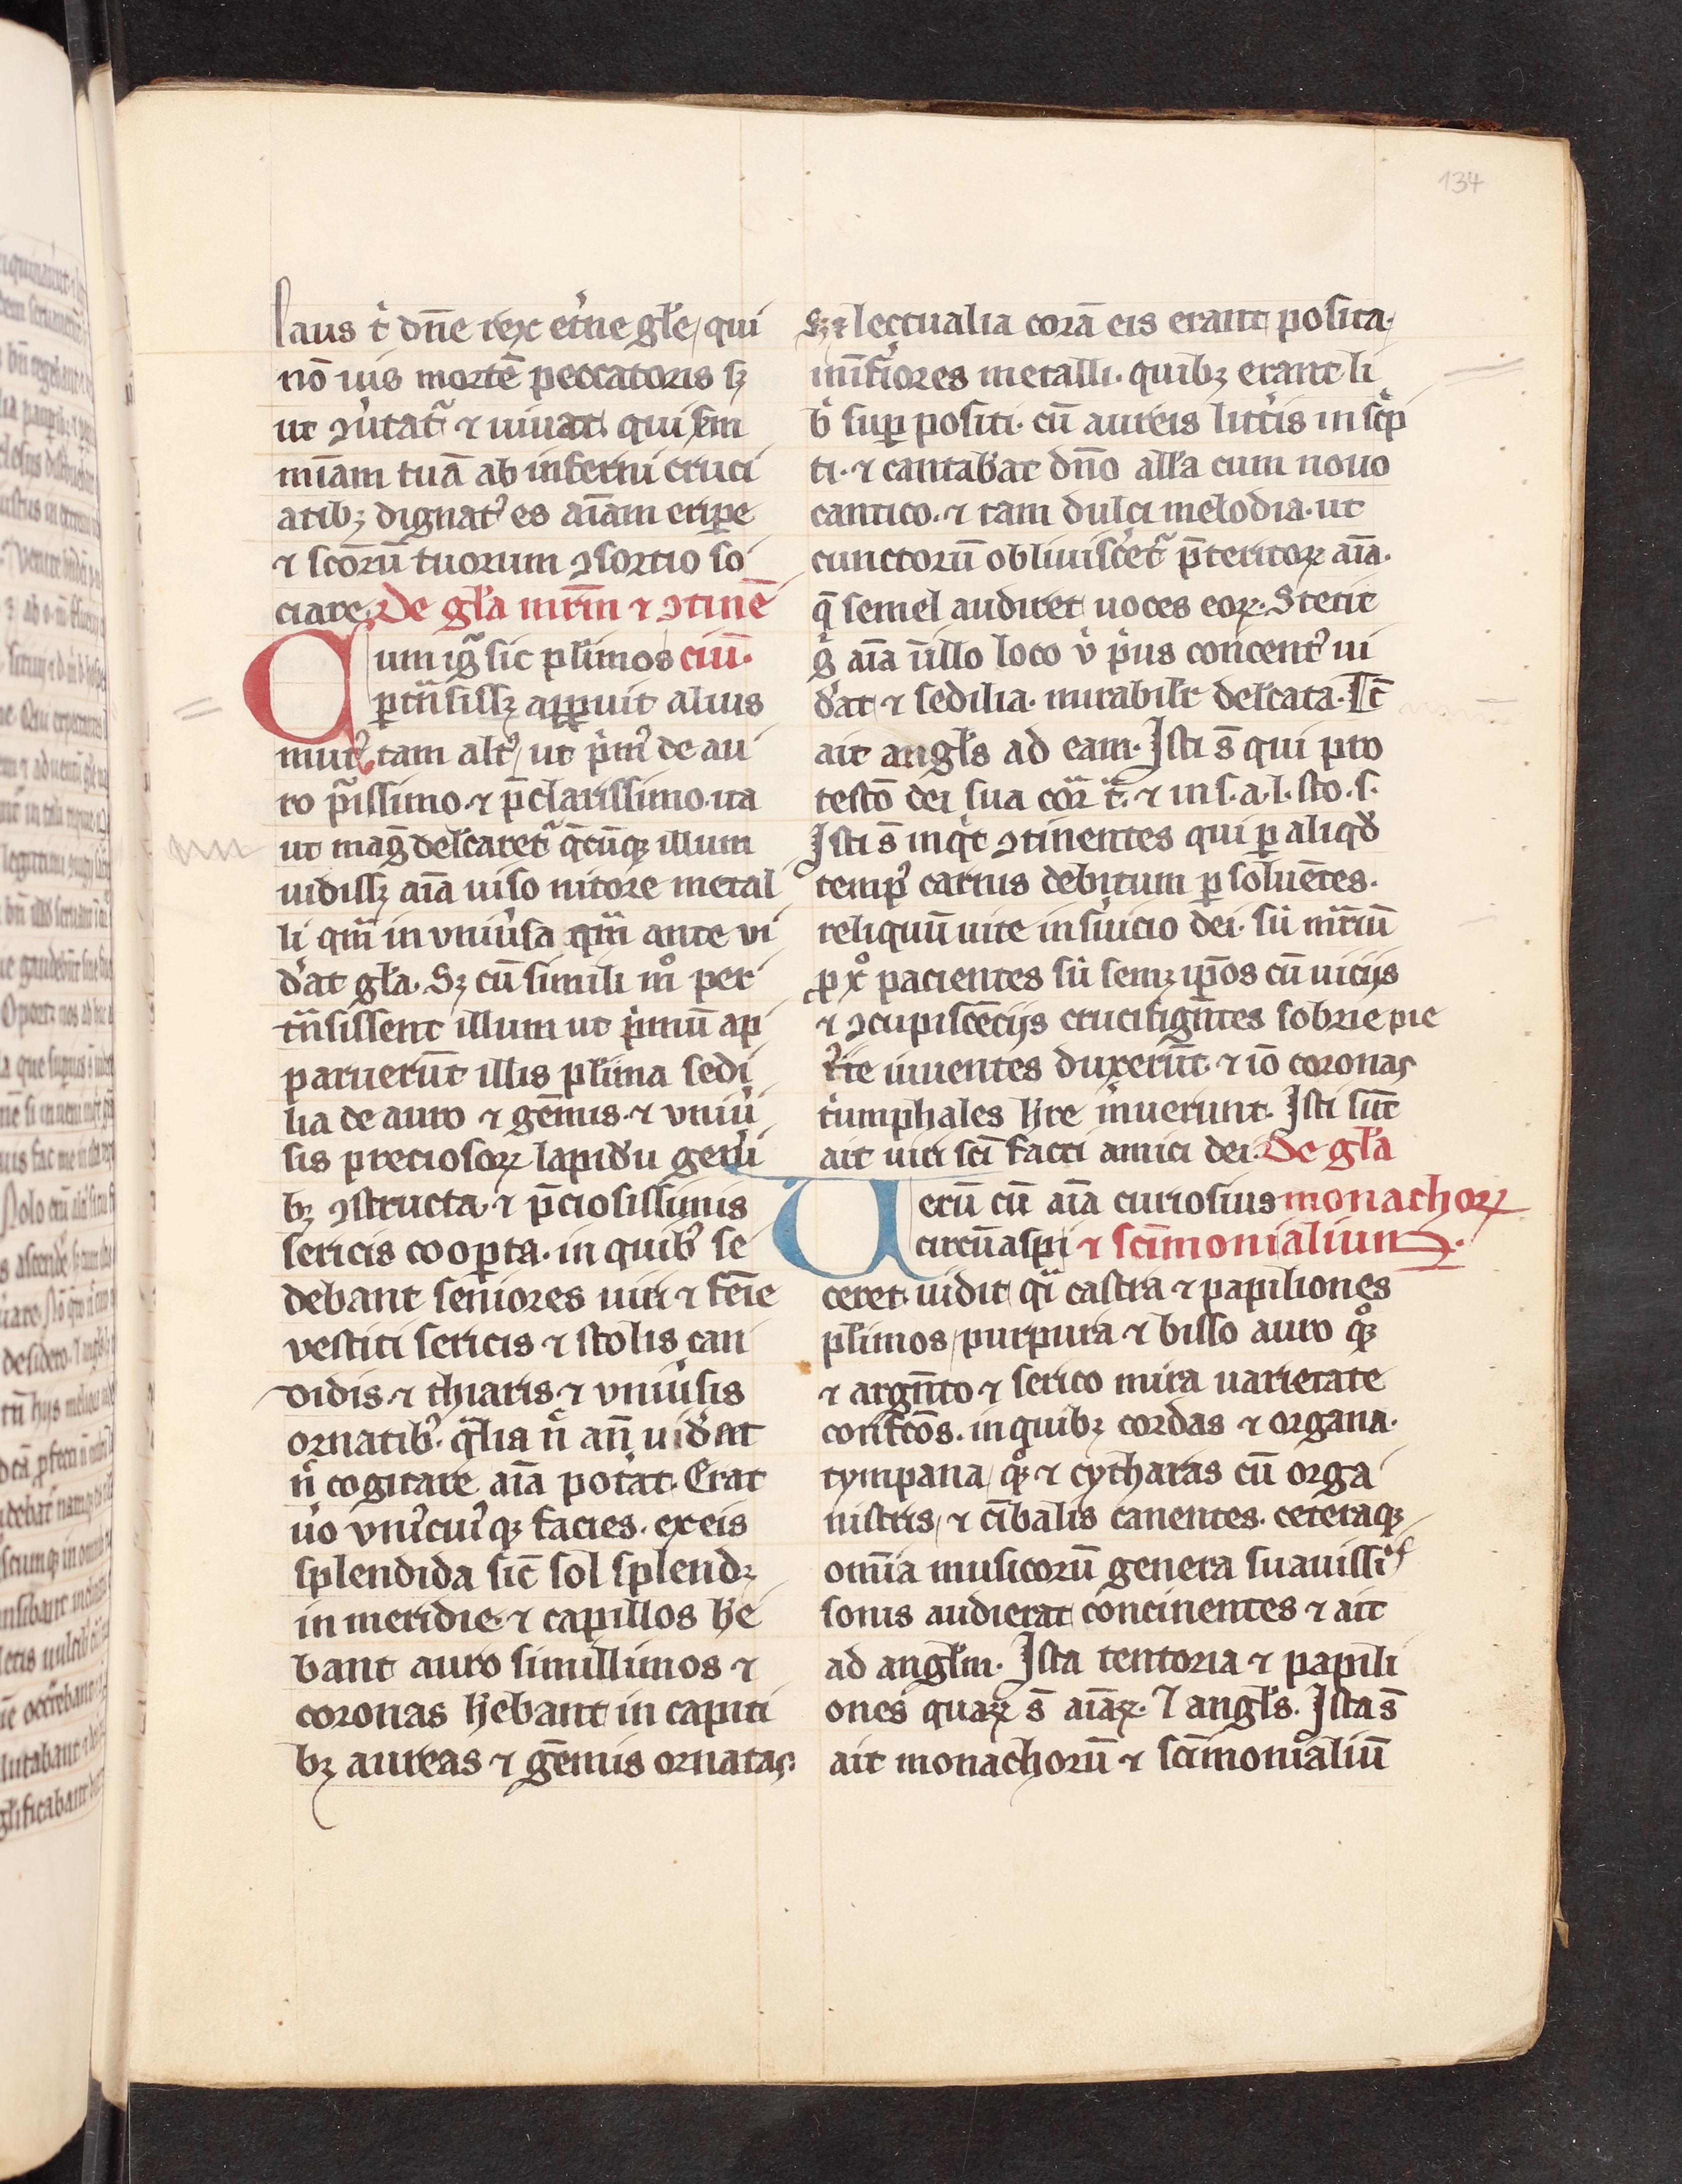 134
laus t̉ dn̄e rex et̉ne gl̄e / qui
nō uis mortē peccatoris sꝫ
ut ꝯũtat᷑ ⁊ uiuat qui sm̄
mīam tuā ab inferni cruci
atibꝫ dignatꝰ es aīam eripe
⁊ scōrū tuorum ꝯsortio so
ciare. De gl̄a mr̄m ⁊ ꝯtinē
Cum ig̃ sic pl̄imos ciū.
ꝑtn̄sissꝫ apꝑuit alius
murꝰ tam altꝰ / ut p̉mꝰ de au
ro p̃issimo. ⁊ p̄clarissimo. ita
ut mag̃ delc̄aret᷑ q̄cūqꝫ illum
uidissꝫ aīa uiso nitore metal
li qm̄ in vniũsa qm̄ ante vi
d̓at gl̄a. Sꝫ cū simili mͦ per
tn̄sissent illum ut p̉mū ap
paruerūt illis pl̄ima sedi
lia de auro ⁊ gēmis. ⁊ vniũ
sis preciosoꝝ lapidū gen̓i
bꝫ ꝯstructa. ⁊ p̄ciosissimis
sericis cooꝑta. in quibꝰ se
debant seniores uiri ⁊ fēīe
vestiti sericis ⁊ stolis can
didis. ⁊ thiaris. ⁊ vniũsis
ornatibꝰ. q̃lia n̉ an̄ uid̓at
n̉ cogitare aīa pot̓at. Erat
ũo vniꝰcuiꝰqꝫ facies. ex eis
splendida sic̄ sol splendꝫ
in meridie. ⁊ capillos h̄e
bant auro simillimos ⁊
coronas h̄ebant in capiti
bꝫ aureas ⁊ gēmis ornatas.
Sꝫ ⁊ lectualia corā eis erant posita.
inf̓iores metalli. quibꝫ erant li
b̉ suꝑ positi. cū aureis litt̓is in sc̉p
ti. ⁊ cantab̄at dn̄o all̄a cum nouo
cantico. ⁊ tam dulci melodia. ut
cunctorū obliuisc̓et᷑ p̄teritoꝝ aīa.
q̄ semel audiret uoces eoꝝ. Stetit
g̉ aīa ūllo loco v̉ p̉us concentꝰ ui
d̓at ⁊ sedilia. mirabil̓r delc̄ata. Tc̄
ait angl̄s ad eam. Isti s̄ qui pro
testō dei sua cor̃ t̃. ⁊ in s. a. l. sto. s.
Isti s̄ inq̉t ꝯtinentes qui ꝑ aliqđ
tempꝰ carnis debitum ꝑsoluētes.
reliquū uite in ſuicio dei. sũ mr̃iū
ꝓ xͦ pacientes sũ semꝫ ip̄os cū uicijs
⁊ ꝯcupiscēcijs crucifign̄tes sobrie pie
uiuentes duxerūt. ⁊ iō coronas
t̉umphales h̄re inuerunt. Isti sūt
ait uiri sc̄i facti amici dei. De gl̄a
Verū cū aīa curiosius monachoꝝ
circūaspi ⁊ sc̄imonialium.
ceret uidit q̃i castra ⁊ papiliones
pl̄imos / purpura ⁊ bisso auro qͦꝫ
⁊ argn̄to ⁊ serico mira uarietate
confcōs. in quibꝫ cordas ⁊ organa.
tympana / qͦꝫ ⁊ cytharas cū orga
nistris / ⁊ cībalis canentes. ceteraqꝫ
om̄ia musicorū genera suauissiꝰ
sonis audierat concinentes ⁊ ait
ad angl̄m. Ista tentoria ⁊ papili
ones quaꝝ s̄ aīaꝝ. ⁊ angl̄s. Ista s̄
ait monachorū ⁊ sc̄imonialiū